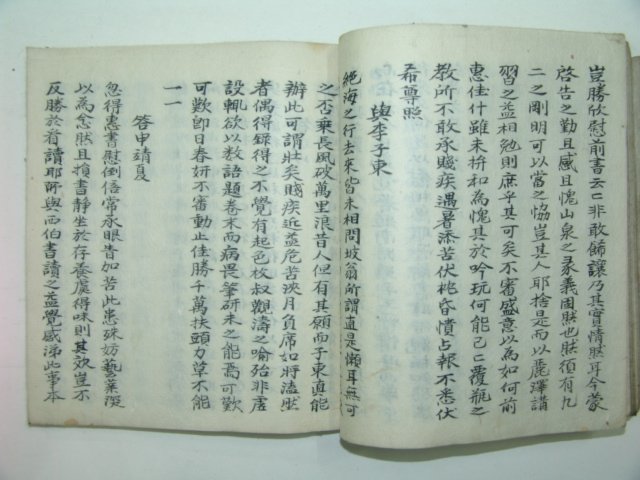 豈勝欣慰前書云云非敢飾讓乃其實情然耳今蒙
啓告之勤且感且愧山泉之彖義固然也然須有九
二之剛明可以當之恊豈其人耶捨是而以麗澤講
習之益相勉則庶乎其可矣不審盛意以為如何前
惠佳什雖未拚和為愧其於吟玩何能已已覆瓶之
教所不敢承賤疾遇暑添苦伏枕昏憒占報不悉伏
希尊照
與李子東
絶海之行去來皆未相問坡翁所謂直是懶耳無可
之否乘長風破萬里浪昔人但有其願而子東真能
辦此可謂壯矣賤疾近益危苦浹月負席如將溘然
者偶得錄得之不覺有起色枚叔觀濤之喻殆非虛
設輒欲以數語題卷末而病畏筆硏未之能焉可歎
可歎卽日春姸不審動止佳勝千萬扶頭力草不能
一一
答申靖夏
忽得惠書慰倒倍常承眼眚如若此患殊妨藝業深
以為念然且損書靜坐於存養處得味則其效豈不
反勝於看讀耶師與西伯書讀之益覺感涕此事本